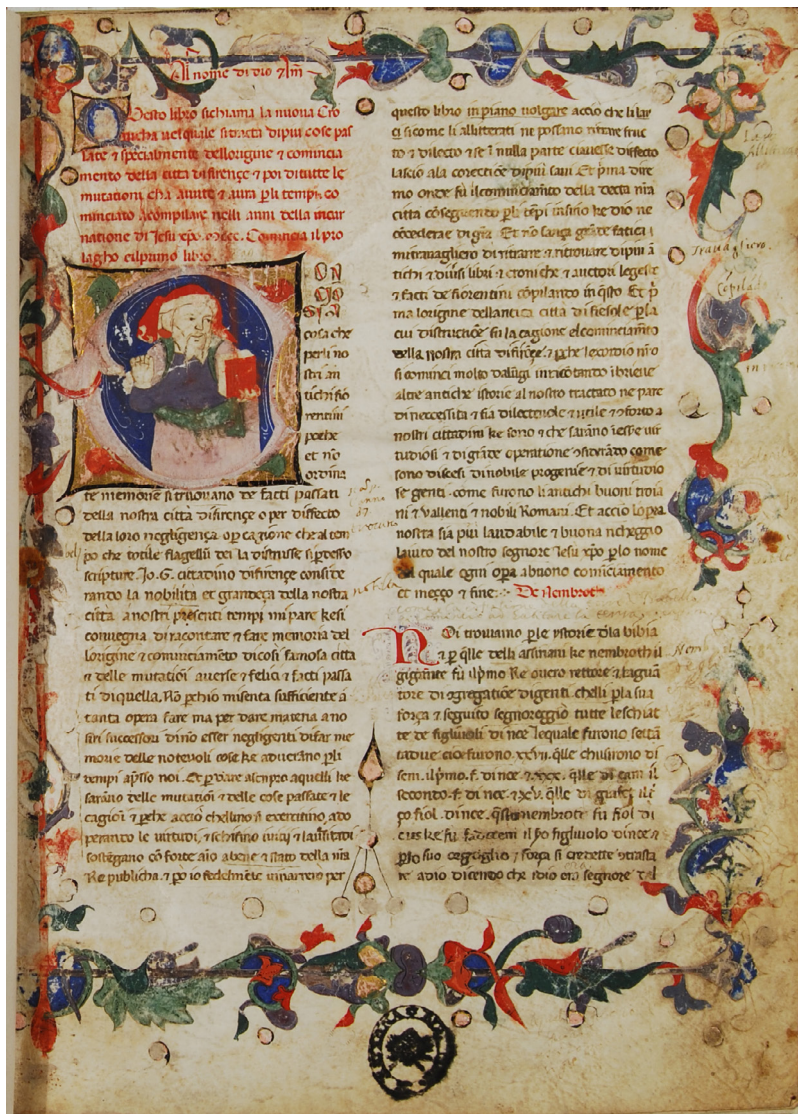 Al nome di dio
Questo libro sichiama la nuova Cro
nicha nel quale si tracta di piu cose pas
sate & spetialmente dellorigine & comincia
mento della citta di firençe & poi di tutte le
mutationi cha avute & avra p li tempi. co
minciato acompilare nelli anni della incar
natione di Jesu xpo. Comincia il pro
lagho eilprimo libro.
cosa che
perli no
stri an
tichi fio
rentini
poche
et nō
ordina
te memorie si truovano de facti passati
della nostra città di firençe o per diffecto
della loro negligença o p cagione che al tem
po che totile flagellū dei la distrusse si perdesso
scripture. Io. G. cittadino di firençe conside
rando la nobilita et grandeça della nostra
citta a nostri presenti tempi mi pare kesi
convegna di racontare & fare memoria del
lorigine & comīciamēto di cosi famosa citta
& delle mutatiōi averse & felici & facti passa
ti di quella. Nō perchio misenta sufficiente a
tanta opera fare ma per dare materia a no
stri successori di nō esser negligenti di far me
morie delle notevoli cose ke averāno p li
tempi apsso noi. Et p dare asempro aquelli ke
sarāno delle mutatiōi & delle cose passate & le
cagiōi & pche acciò chellino si exercitino ado
perando le virtudi & schifino
sostegano cō forte aīo a bene & stato della nr̄a
Re publicha. & po io fedelmēte
questo libro in piano volgare accio che li lai
ci sicome li allitterati ne possano ritrare fruc
to & dilecto & se ī nulla parte ci avesse diffecto
lascio ala correctiōe di piu savi. Et pma dire
mo onde fu il cominciam̄to della decta nr̄a
citta cōseguendo p li tēpi infino ke dio ne
cōcedera di gr̄a. Et nō sança grāde fatica
mi travagliero di ritrarre & ritrovare di piu ā
tichi & diversi libri & croniche & auctori le geste
& facti de fiorentini cōpilando in q̄sto. Et p̄
ma lorigine dellantica citta di fiesole p la
cui distructiōe fu la cagione el cominciam̄to
della nostra citta di firēçe. & pche lexordio nr̄o
si cominci molto da lūgi in ricōtando i brieve
altre antiche istorie al nostro tractato ne pare
di neccessita & fia dilectevole & utile & cōforto a
nostri cittadini ke sono & che sarāno
tudiosi & di grāde operatione cōsiderādo come
sono discesi di nobile progenie & di virtudio
se genti. come furono li antichi buoni troia
ni & vallenti & nobili Romani. Et accio lopra
nostra sia piu laudabile & buona richeggio
laiuto del nostro segnore Iesu xpo p lo nome
del quale ogni opa a buono comīciamento
et meçço & fine. De Nembroth
Noi trovamo p le ystorie dla bibia
& p q̄lle delli assiriani ke nembroth il
gighante fu il pmo Re overo rettore &
tore di cōgregatiōe di genti chelli p la sua
força & seguito segnoreggiò tutte le schiat
te de figliuoli di noe lequale furono setta
tadue cioe furono. xxvii. q̄lle chusirono di
sem. il pmo. f. di noe. & xxx. q̄lle di cam il
secondo. f. di noe. & xv. q̄lle di giafet il t̄
ço fiol. di noe. questo nembrotte fu fiol di
cus ke fu fo de cam il po figliuolo di noe &
p lo suo orgoglio & força si credette cōtrasta
re a dio dicendo che idio era segnore del
Travagliero.
Copilado